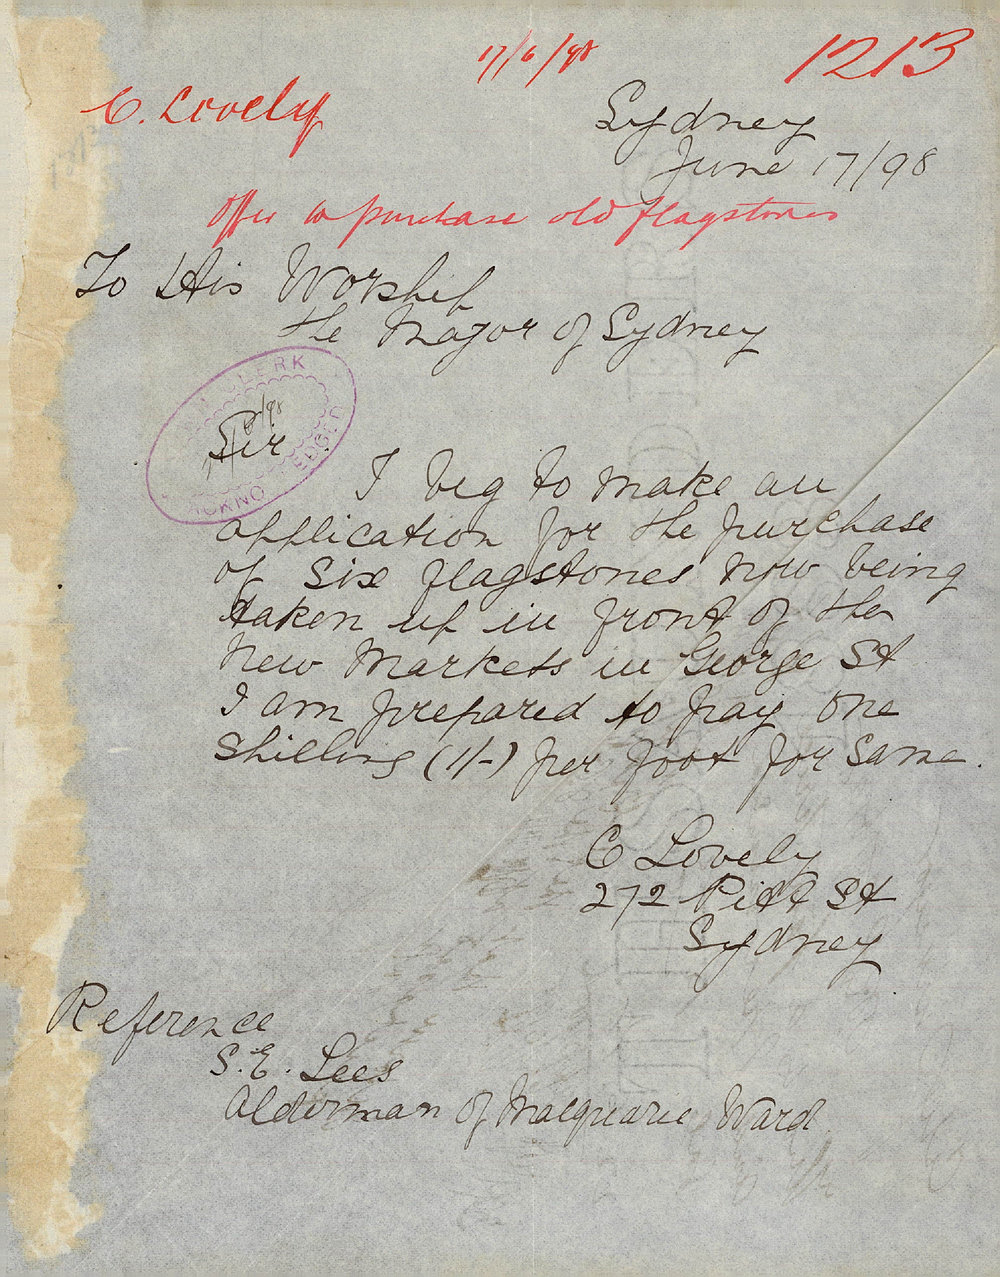 17/6/98
1213
C. Lovely
Sydney
June 17/98
Offer to purchase old flagstones
To His Worship
the Mayor of Sydney
CLERK
Sir
I beg to make an
application for the purchase
of Six flagstones now being
taken up in front of the
New Markets in George St
I am prepared to pay one
Shilling (1/-) per foot for same.
C Lovely
272 Pitt St
Sydney
Reference
S. E. Lees
Alderman of Macquarie Ward